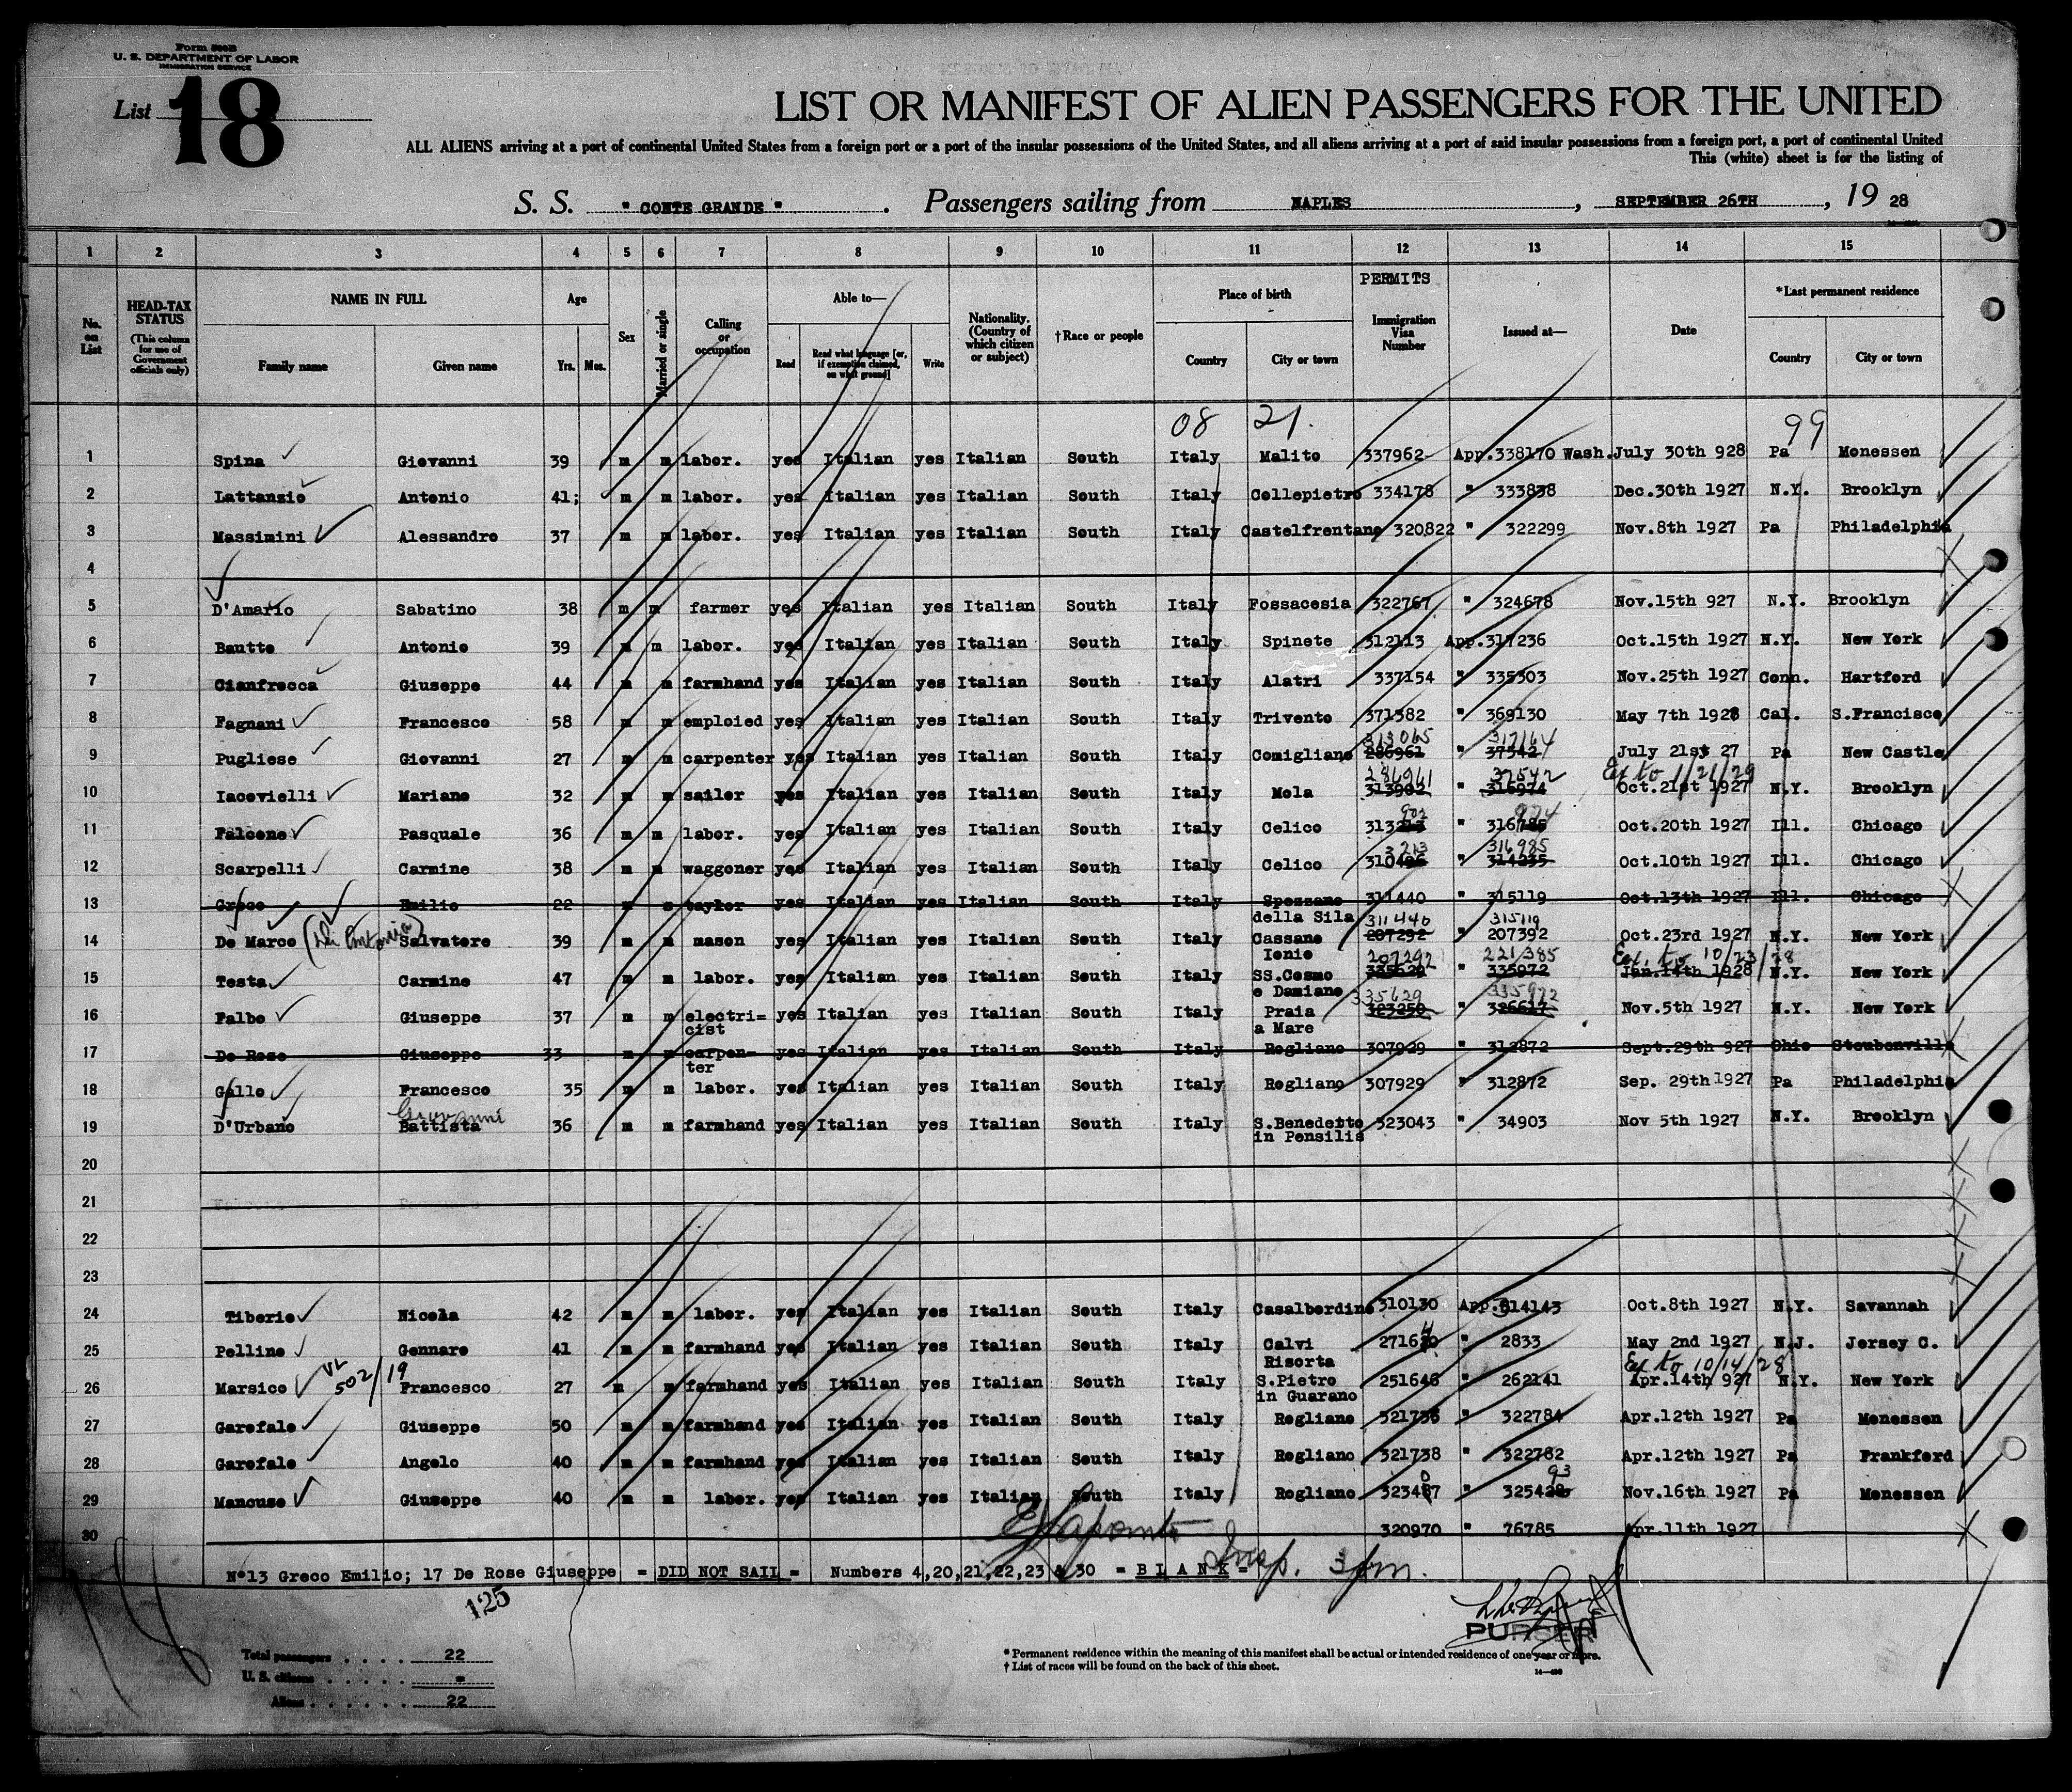 Form 500B
U. S. DEPARTMENT OF LABOR
IMMIGRATION SERVICE
List 18
LIST OR MANIFEST OF ALIEN PASSENGERS FOR THE UNITED
ALL ALIENS arriving at a port of continental United States from a foreign port or a port of the insular possessions of the United States, and all aliens arriving at a port of said insular possessions from a foreign port, a port of continental United
This (white) sheet is for the listing of
S. S. " CONTE GRANDE " . Passengers sailing from NAPLES , SEPTEMBER 26TH , 19 28
1 2 3 4 5 6 7 8 9 10 11 12 13 14 15
PERMITS
No. on List
HEAD-TAX STATUS (This column for use of Government officials only)
NAME IN FULL
Family name Given name
Age
Yrs. Mos.
Sex
Married or single
Calling or occupation
Able to—
Read
Read what language [or, if exemption claimed, on what ground]
Write
Nationality. (Country of which citizen or subject)
†Race or people
Place of birth
Country City or town
Immigration Visa Number
Issued at—
Date
*Last permanent residence
Country City or town
08 21. 99
1 Spina Giovanni 39 m m labor. yes Italian yes Italian South Italy Malito 337962 App.338170 Wash. July 30th 928 Pa Monessen
2 Lattanzio Antonio 41; m m labor. yes Italian yes Italian South Italy Collepietro 334178 " 333838 Dec.30th 1927 N.Y. Brooklyn
3 Massimini Alessandro 37 m m labor. yes Italian yes Italian South Italy Castelfrentano 320822 " 322299 Nov.8th 1927 Pa Philadelphia
4
5 D'Amario Sabatino 38 m m farmer yes Italian yes Italian South Italy Fossacesia 322767 " 324678 Nov.15th 927 N.Y. Brooklyn
6 Bautto Antonio 39 m m labor. yes Italian yes Italian South Italy Spinete 312113 App.317236 Oct.15th 1927 N.Y. New York
7 Cianfrocca Giuseppe 44 m m farmhand yes Italian yes Italian South Italy Alatri 337154 " 335303 Nov.25th 1927 Conn. Hartford
8 Fagnani Francesco 58 m m emploied yes Italian yes Italian South Italy Trivento 371382 " 369130 May 7th 1928 Cal. S.Francisco
313065 317164
9 Pugliese Giovanni 27 m m carpenter yes Italian yes Italian South Italy Comigliano 286961 " 37542 July 21st 27 Pa New Castle
286961 37542 Ex to 1/21/29
10 Iacovielli Mariano 32 m m sailor yes Italian yes Italian South Italy Mola 313902 " 316974 Oct.21st 1927 N.Y. Brooklyn
902 974
11 Falcone Pasquale 36 m m labor. yes Italian yes Italian South Italy Celico 313213 " 316785 Oct.20th 1927 Ill. Chicago
3213 316985
12 Scarpelli Carmine 38 m m waggoner yes Italian yes Italian South Italy Celico 310496 " 314235 Oct.10th 1927 Ill. Chicago
13 Greco Emilio 22 m s taylor yes Italian yes Italian South Italy Spezzano della Sila 311440 " 315119 Oct.13th 1927 Ill. Chicago
311440 315119
14 De Marco Salvatore 39 m m mason yes Italian yes Italian South Italy Cassano Ionio 207292 " 207392 Oct.23rd 1927 N.Y. New York
207292 221385 Ex. to 10/23/28
15 Testa Carmine 47 m m labor. yes Italian yes Italian South Italy SS.Cosmo e Damiano 335629 " 335972 Jan.14th 1928 N.Y. New York
335629 335972
16 Falbo Giuseppe 37 m m electri= cist yes Italian yes Italian South Italy Praia a Mare 323250 " 326617 Nov.5th 1927 N.Y. New York
17 De Rose Giuseppe 33 m m carpen- ter yes Italian yes Italian South Italy Rogliano 307929 " 312872 Sept.29th 927 Ohio Steubenville
18 Gallo Francesco 35 m m labor. yes Italian yes Italian South Italy Rogliano 307929 " 312872 Sep. 29th 1927 Pa Philadelphia
Giovanni
19 D'Urbano Battista 36 m m farmhand yes Italian yes Italian South Italy S.Benedetto in Pensilis 323043 " 34903 Nov 5th 1927 N.Y. Brooklyn
20
21
22
23
24 Tiberio Nicola 42 m m labor. yes Italian yes Italian South Italy Casalbordino 310130 App.314143 Oct.8th 1927 N.Y. Savannah
25 Pellino Gennaro 41 m m farmhand yes Italian yes Italian South Italy Calvi Risorta " 2833 May 2nd 1927 N.J. Jersey C.
502/19 Ex to 10/14/28
26 Marsico Francesco 27 m m farmhand yes Italian yes Italian South Italy S.Pietro in Guarano 251646 " 262141 Apr.14th 927 N.Y. New York
27 Garofalo Giuseppe 50 m m farmhand yes Italian yes Italian South Italy Rogliano 321736 " 322784 Apr.12th 1927 Pa Monessen
28 Garofalo Angelo 40 m m farmhand yes Italian yes Italian South Italy Rogliano 321738 " 322782 Apr.12th 1927 Pa Frankford
0 93
29 Mancuso Giuseppe 40 m m labor. yes Italian yes Italian South Italy Rogliano 323487 " 325428 Nov.16th 1927 Pa Monessen
30 320970 " 76785 Apr.11th 1927
N°13 Greco Emilio; 17 De Rose Giuseppe = DID NOT SAIL = Numbers 4,20,21,22,23 & 30 = B L A N K =
Insp. 3 pm.
125
PURSER
Total passengers . . . . 22
U. S. citizens . . . . . =
Aliens . . . . . . 22
* Permanent residence within the meaning of this manifest shall be actual or intended residence of one year or more.
† List of races will be found on the back of this sheet.